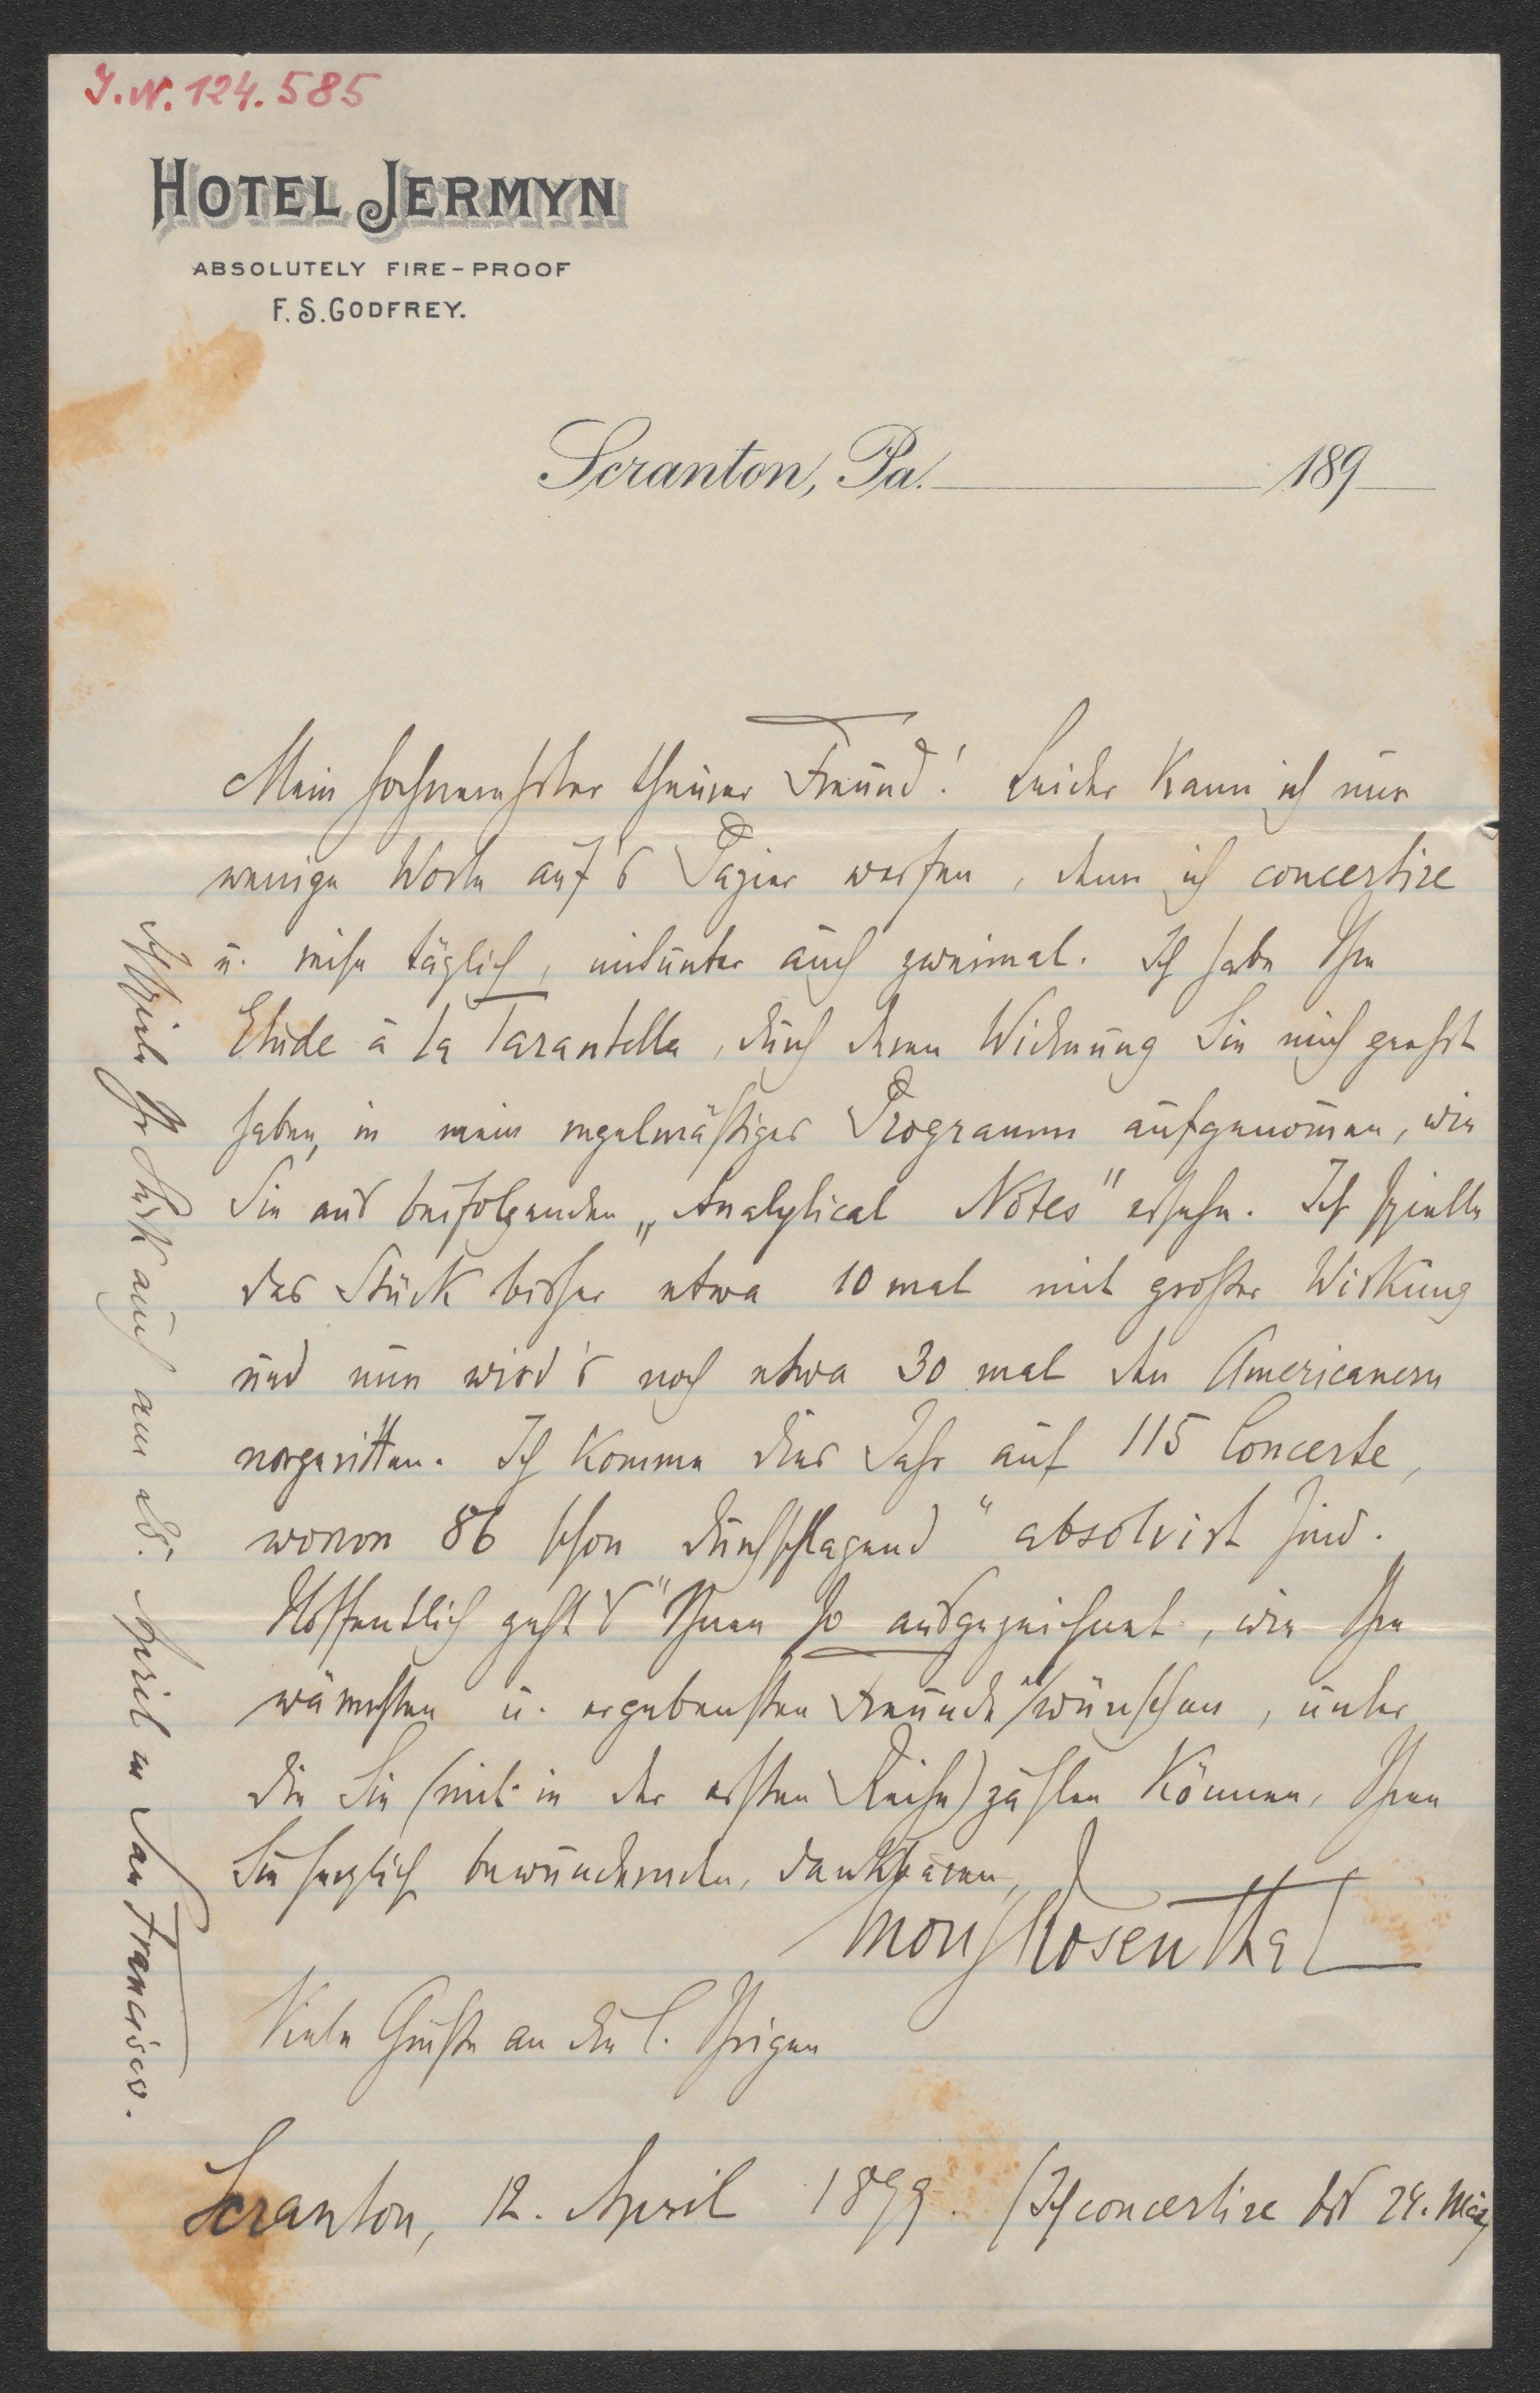 I.N. 124.585
HOTEL JERMYN
ABSOLUTELY FIRE-PROOF
F. S. GODFREY.
Scranton, Pa. 189
Mein hochverehrter theurer Freund! Leider kann ich nur
wenige Worte auf's Papier werfen, denn ich concertire
u. reise täglich, mitunter auch zweimal. Ich habe Ihre
Etude à la Tarantella, durch deren Widmung Sie mich geehrt
haben, in mein regelmäßiges Programm aufgenom̄en, wie
Sie aus beifolgenden „Analytical Notes" ersehen. Ich spielte
das Stück bisher etwa 10 mal mit großer Wirkung
und nun wird's noch etwa 30 mal den Americanern
vorgeritten. Ich komme dies Jahr auf 115 Concerte,
wovon 86 schon „durchschlagend" absolvirt sind.
Hoffentlich geht's Ihnen so ausgezeichnet, wie Ihre
wärmsten u. ergebensten Freunde es wünschen, unter
die Sie (mit in der ersten Reihe) zählen können, Ihren
Sie herzlich bewundernden, dankbaren,
Moriz Rosenthal
Viele Grüße an die l. Ihrigen
Scranton, 12. April 1899. (Ich concertire bis 24. Mai
Ich spiele Ihr Stück auch am 28. April in San Francisco.